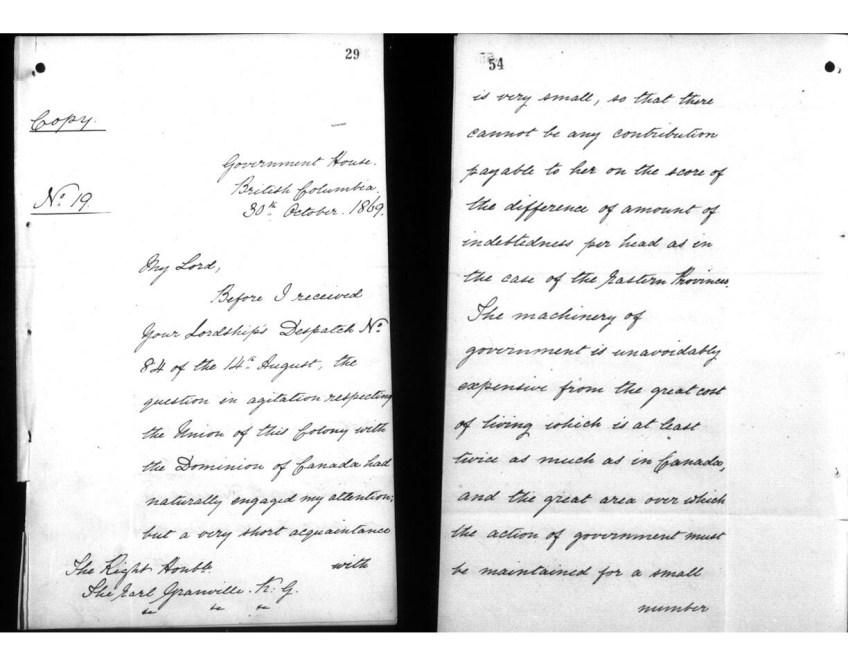 29
Copy.
Government House.
British Columbia.
30th October. 1869.
No. 19
My Lord,
Before I received
Your Lordship's Despatch No.
84 of the 14th August, the
question in agitation respecting
the Union of this Colony with
the Dominion of Canada had
naturally engaged my attention;
but a very short acquaintance
with
The Right Honble.
The Earl Granville. K.G.
54
is very small, so that there
cannot be any contribution
payable to her on the score of
the difference of amount of
indebtedness per head as in
the case of the Eastern Provinces.
The machinery of
government is unavoidably
expensive from the great cost
of living which is at least
twice as much as in Canada,
and the great area over which
the action of government must
be maintained for a small
number